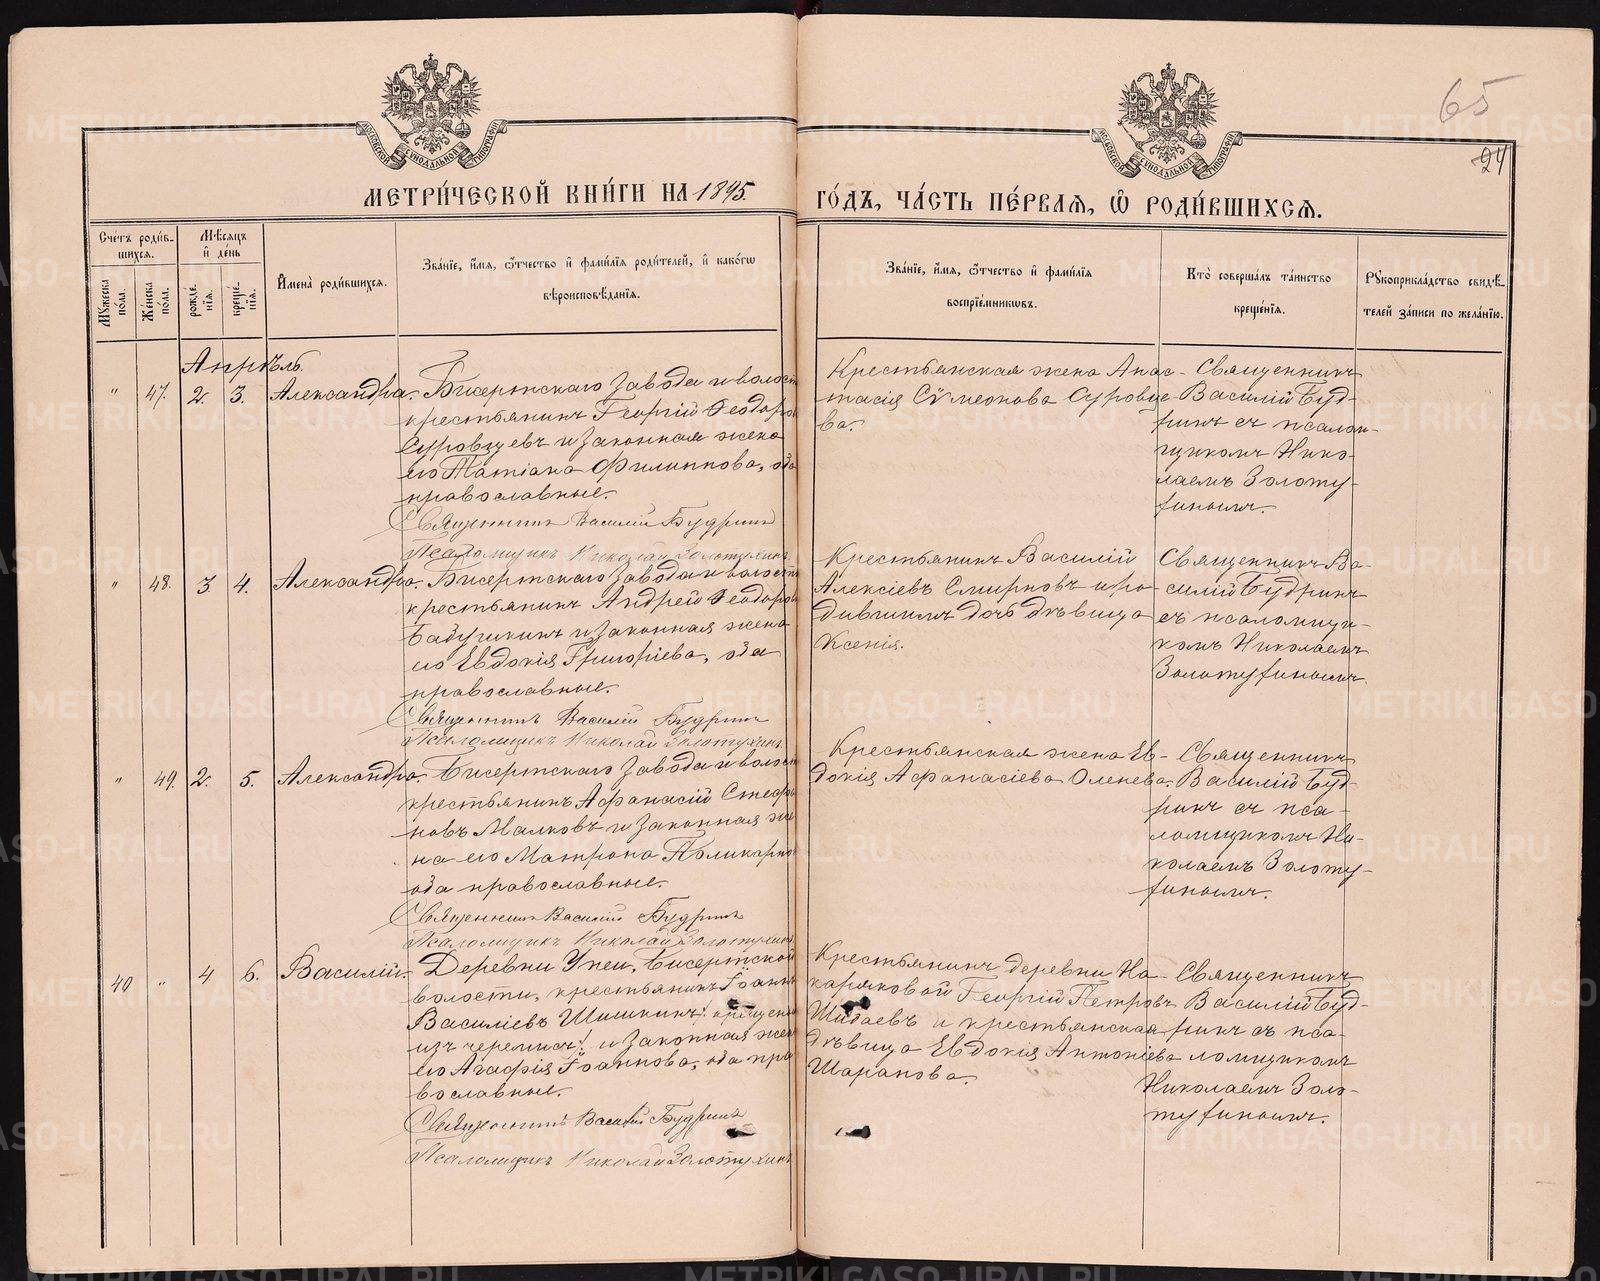 65
24
МОСКОВСКОЙ СѴНОДАЛЬНОЙ ТИПОГРАФІИ
МОСКОВСКОЙ СѴНОДАЛЬНОЙ ТИПОГРАФІИ
МЕТРИ́ЧЕСКОЙ КНИ́ГИ НА 1895.
ГО́ДЪ, ЧА́СТЬ ПЕ́РВАЯ, Ѡ РОДИ́ВШИХСЯ.
Сче́тъ роди́в-
шихся.
Мѣ́сяцъ
и҆ де́нь
Му́жеска
по́ла.
Же́нска
по́ла.
рожде́-
нія.
креще́-
нія.
И҆мена̀ роди́вшихся.
Зва́ніе, и҆́мя, ѻ҆́тчество и҆ фами́лія роди́телей, и҆ како́гѡ
вѣроисповѣ́данія.
Зва́ніе, и҆́мя, ѻ҆́тчество и҆ фами́лія
воспріе́мниковъ.
Кто̀ соверша́лъ та́инство
креще́нія.
Рукоприкла́дство свидѣ́-
телей за́писи по жела́нію.
Апрѣль.
" 47. 2. 3. Александра.
Бисертскаго Завода и волости
крестьянинъ Георгій Ѳеодоро
Суровцевъ и законная жена
его Татіана Филиппова, оба
православные.
Священникъ Василій Будринъ
Псаломщикъ Николай Золотухинъ
Крестьянская жена Анас-
тасія Сѵмеонова Суровце
ва.
Священникъ
Василій Буд-
ринъ съ псалом-
щикомъ Нико-
лаемъ Золоту-
хинымъ.
" 48. 3 4. Александра.
Бисертскаго Завода и волости
крестьянинъ Андрей Ѳеодоров
Бабушкинъ и законная жена
его Евдокія Григоріева, оба
православные.
Священникъ Василій Будринъ
Псаломщикъ Николай Золотухинъ
Крестьянинъ Василій
Алексіевъ Смирновъ и ро
дившимъ дочь дѣвица
Ксенія.
Священникъ Ва-
силій Будринъ
съ псаломщи-
комъ Николаемъ
Золотухинымъ
" 49. 2. 5. Александра.
Бисертскаго Завода и волост
крестьянинъ Афанасій Стефа
новъ Малковъ и законная же
на его Матрона Поликарпо
оба православные.
Священникъ Василій Будринъ
Псаломщикъ Николай Золотухинъ
Крестьянская жена Ев-
докія Афанасіева Оленева.
Священникъ
Василій Буд-
ринъ съ пса-
ломщикомъ Ни-
колаемъ Золоту-
хинымъ.
40 " 4 6. Василій.
Деревни Упеи, Бисертской
волости, крестьянинъ Іоанн
Василіевъ Шишкинъ (крещены
изъ черемисъ) и законная жен
его Агафія Іоаннова, оба пра
вославные.
Священникъ Василій Будринъ
Псаломщикъ Николай Золотухинъ
Крестьянинъ деревни На-
каряковой Георгій Петровъ
Шибаевъ и крестьянская
дѣвица Евдокія Антоніева
Шарапова.
Священникъ
Василій Буд-
ринъ съ пса-
ломщикомъ
Николаемъ Золо-
тухинымъ.